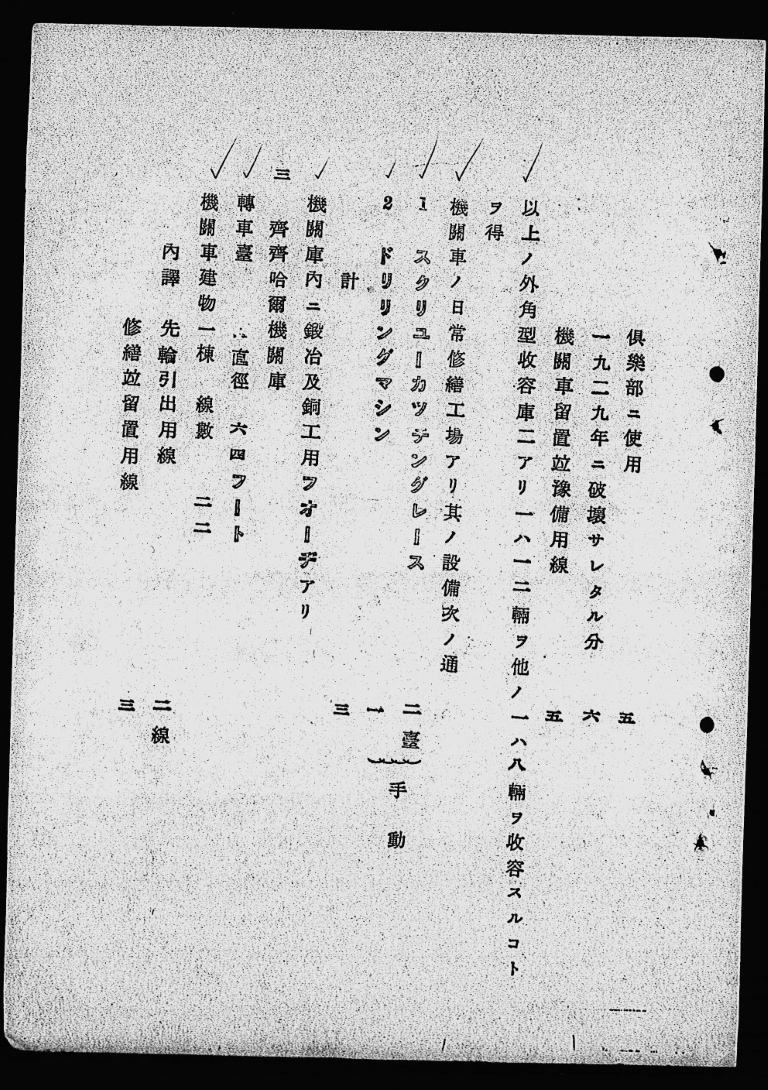 倶樂部ニ使用 五
一九二九年ニ破壞サレタル分 六
機關車留置竝豫備用線 五
以上ノ外角型收容庫二アリ一ハ一二輛ヲ他ノ一ハ八輛ヲ收容スルコト
ヲ得
機關車ノ日常修繕工場アリ其ノ設備次ノ通
1 スクリユーカツチングレース 二臺
2 ドリリングマシン 一
手動
計 三
機關庫內ニ鍛冶及銅工用フオーヂアリ
三 齊齊哈爾機關庫
轉車臺 直徑 六四フート
機關車建物一棟 線數 二二
內譯 先輪引出用線 二線
修繕竝留置用線 三